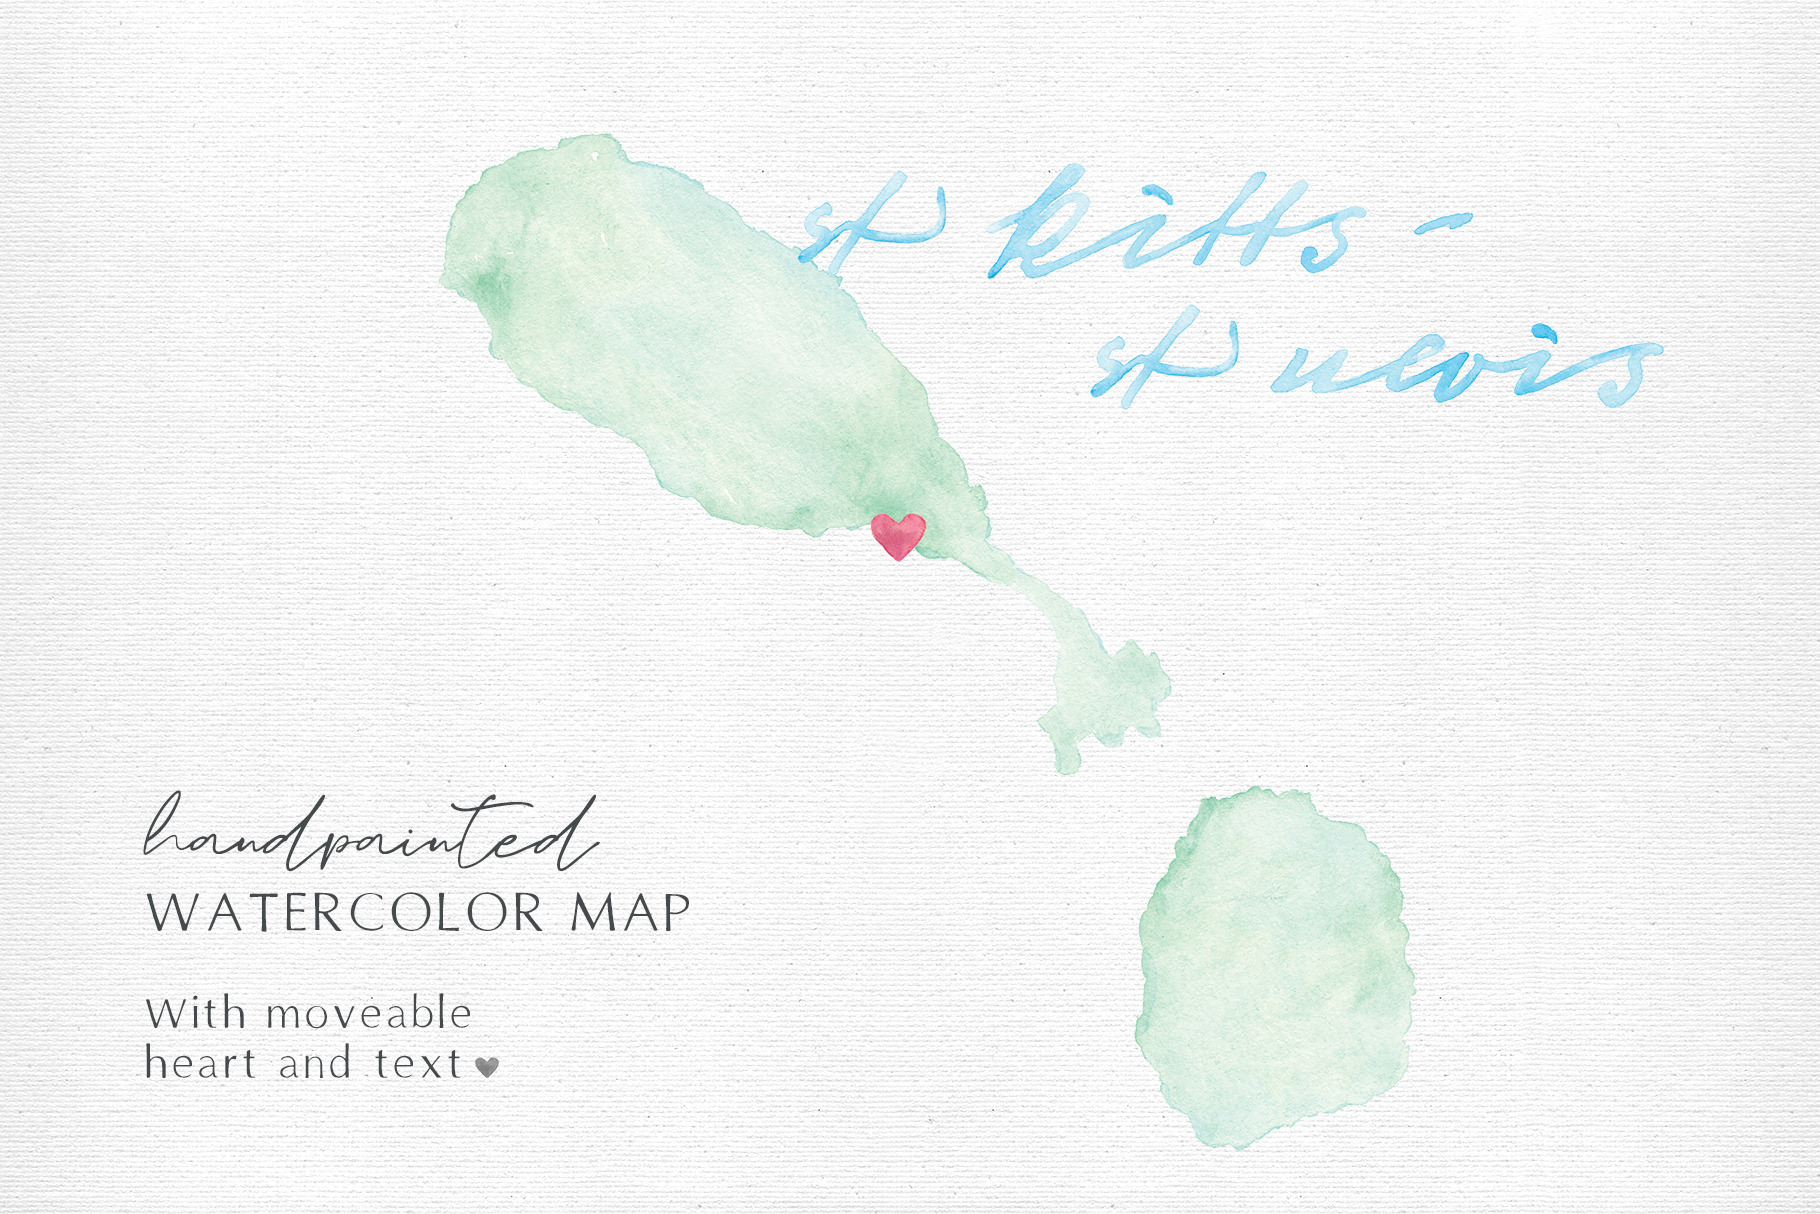 st kitts -
st nevis
handpainted
WATERCOLOR MAP
With moveable
heart and text